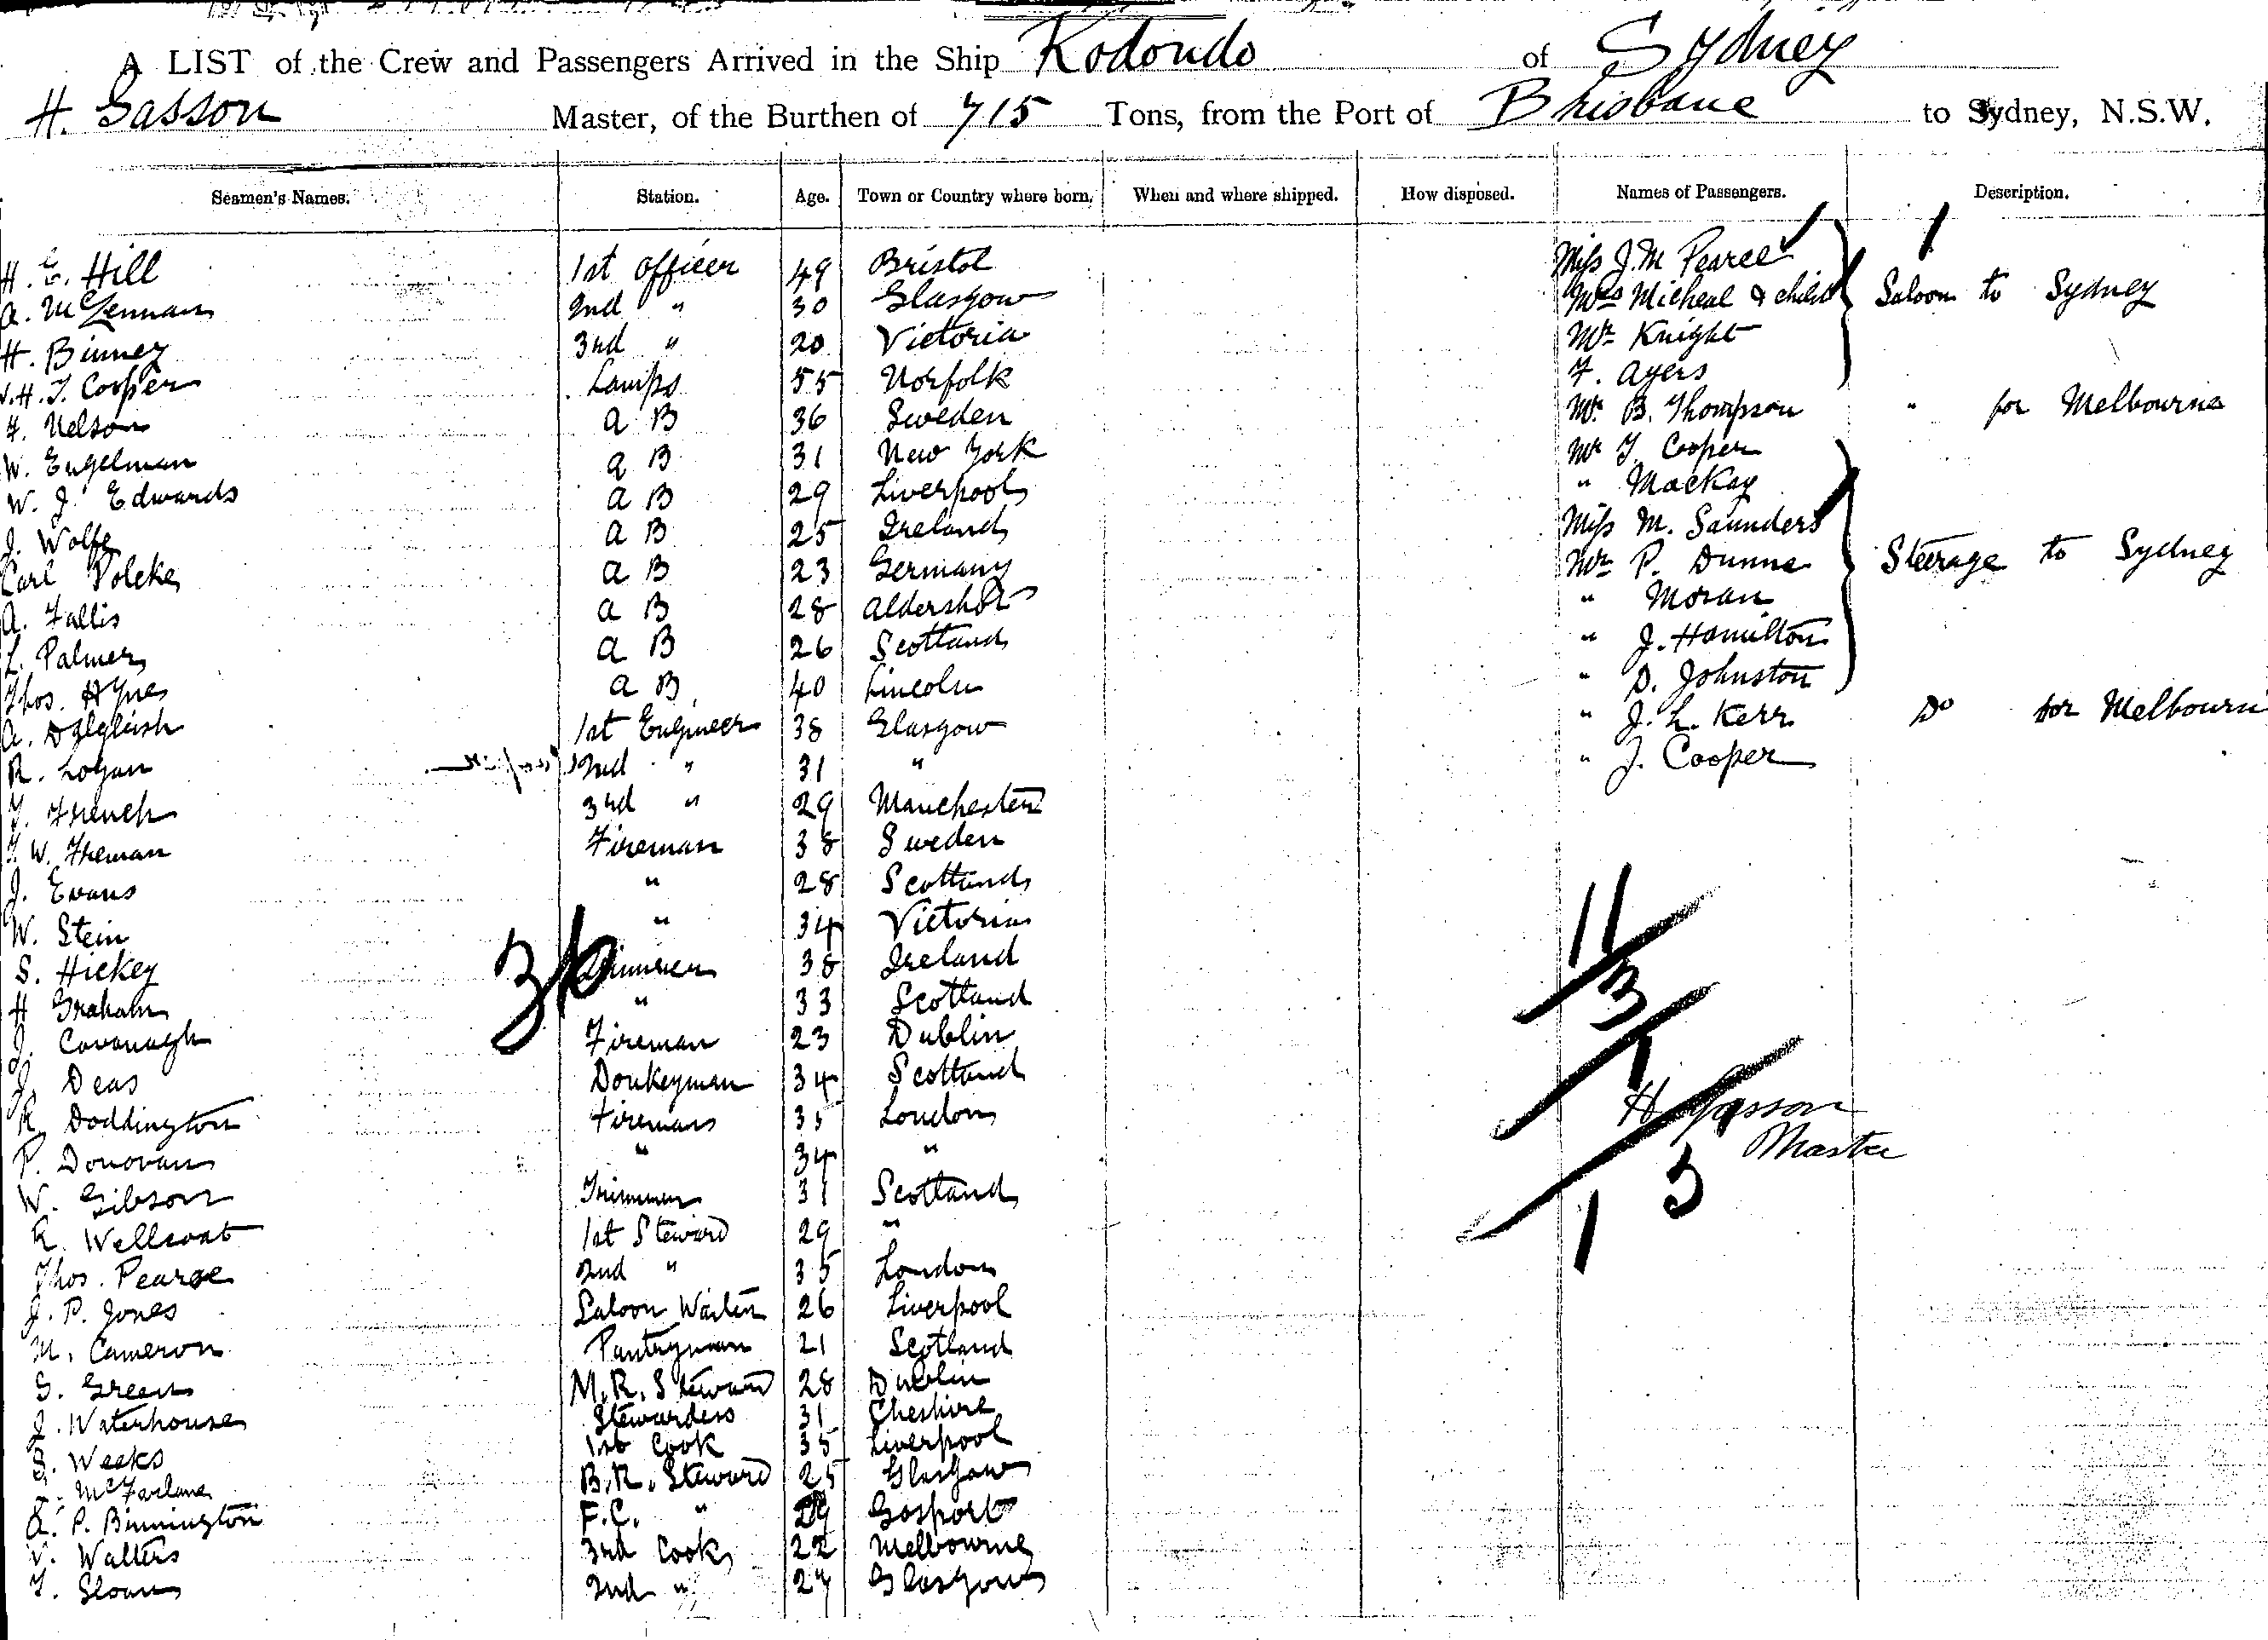 A LIST of the Crew and Passengers Arrived in the Ship Rodondo of Sydney
H. Gasson Master, of the Burthen of 715 Tons, from the Port of Brisbane to Sydney, N.S.W.
Seamen's Names. Station. Age. Town or Country where born. When and where shipped. How disposed. Names of Passengers. Description.
H. E. Hill 1st Officer 49 Bristol Miss J. M Pearce
A. McLennan 2nd " 30 Glasgow Mrs Micheal & child Saloon to Sydney
H. Binney 3rd " 20 Victoria Mr Knight
H. J. Cooper Lamps 55 Norfolk F. Ayers
F. Nelson A B 36 Sweden Mr B. Thompson " for Melbourne
W. Engelman A B 31 New York Mr J. Cooper
W. J. Edwards A B 29 Liverpool " Mackay
J. Wolfe A B 25 Ireland Miss M. Saunders
Carl Polcke A B 23 Germany Mr P. Dunne Steerage to Sydney
A. Fallis A B 28 Aldershot " Moran
L. Palmer A B 26 Scotland " J. Hamilton
Thos. Hynes A B 40 Lincoln " D. Johnston
A. Dalgleish 1st Engineer 38 Glasgow " J. L. Kerr Do for Melbourn
R. Logan 2nd " 31 " " J. Cooper
T. French 3rd " 29 Manchester
T. W. Freman Fireman 38 Sweden
J. Evans " 28 Scotland
W. Stein " 34 Victoria 11
S. Hickey Trimmer 38 Ireland
36
H Graham " 33 Scotland 3
J. Cavanagh Fireman 23 Dublin
J. Deas Donkeyman 34 Scotland 1
R. Doddington Fireman 35 London H Gasson
P. Donovan " 34 " Master
W. Gibson Trimmer 31 Scotland
R. Wellcoat 1st Steward 29 " 1
Thos. Pearse 2nd " 35 London
J. P. Jones Saloon Waiter 26 Liverpool
M. Cameron Pantryman 21 Scotland
S. Green M. R. Steward 28 Dublin
J. Waterhouse Stewardess 31 Cheshire
S. Weeks 1st Cook 35 Liverpool
McFarlane B. R. Steward 25 Glasgow
A. P. Binnington F. C. " 29 Gosport
V. Walters 3rd Cook 22 Melbourne
T. Sloan 2nd " 27 Glasgow